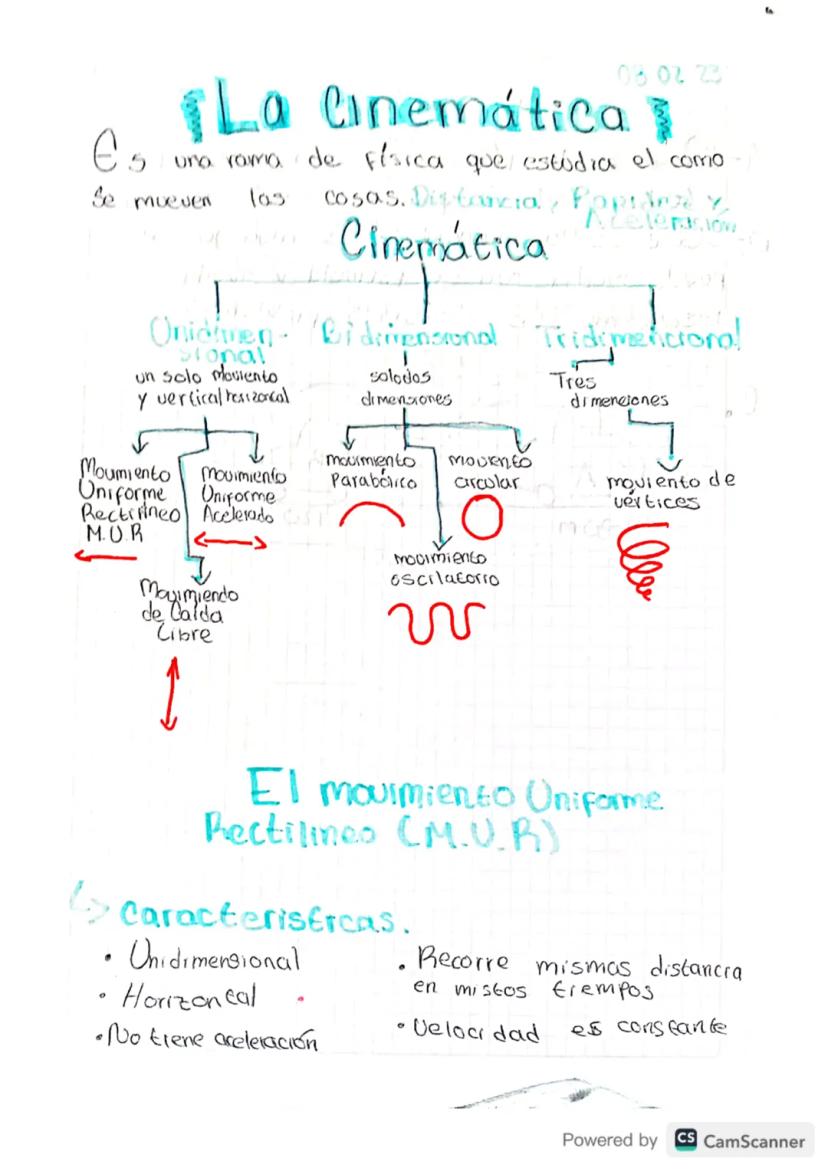 03 02 23
¡La cinemática!
Es una rama de física que estúdia el como
se mueven las cosas. Distancia, Rapidez y
Aceleración
Cinemática
Unidimen-
sional
un solo moviento
y vertical horizontal
Bidimensional
solodos
dimensiones
Tridimencional
Tres
dimenciones
Movimiento
Uniforme
Rectilineo
M.U.R
movimiento
Uniforme
Acelerado
Movimiendo
de Caída
Libre
movimiento
Parabólico
moviento
circular
movimiento
oscilatorio
moviento de
vértices
El movimiento Uniforme
Rectilineo (M.U.R)
Caracteristicas.
• Unidimensional
• Horizontal
• No tiene aceleración
• Recorre mismas distancia
en mistos tiempos
• Velocidad es constante
Powered by CS CamScanner